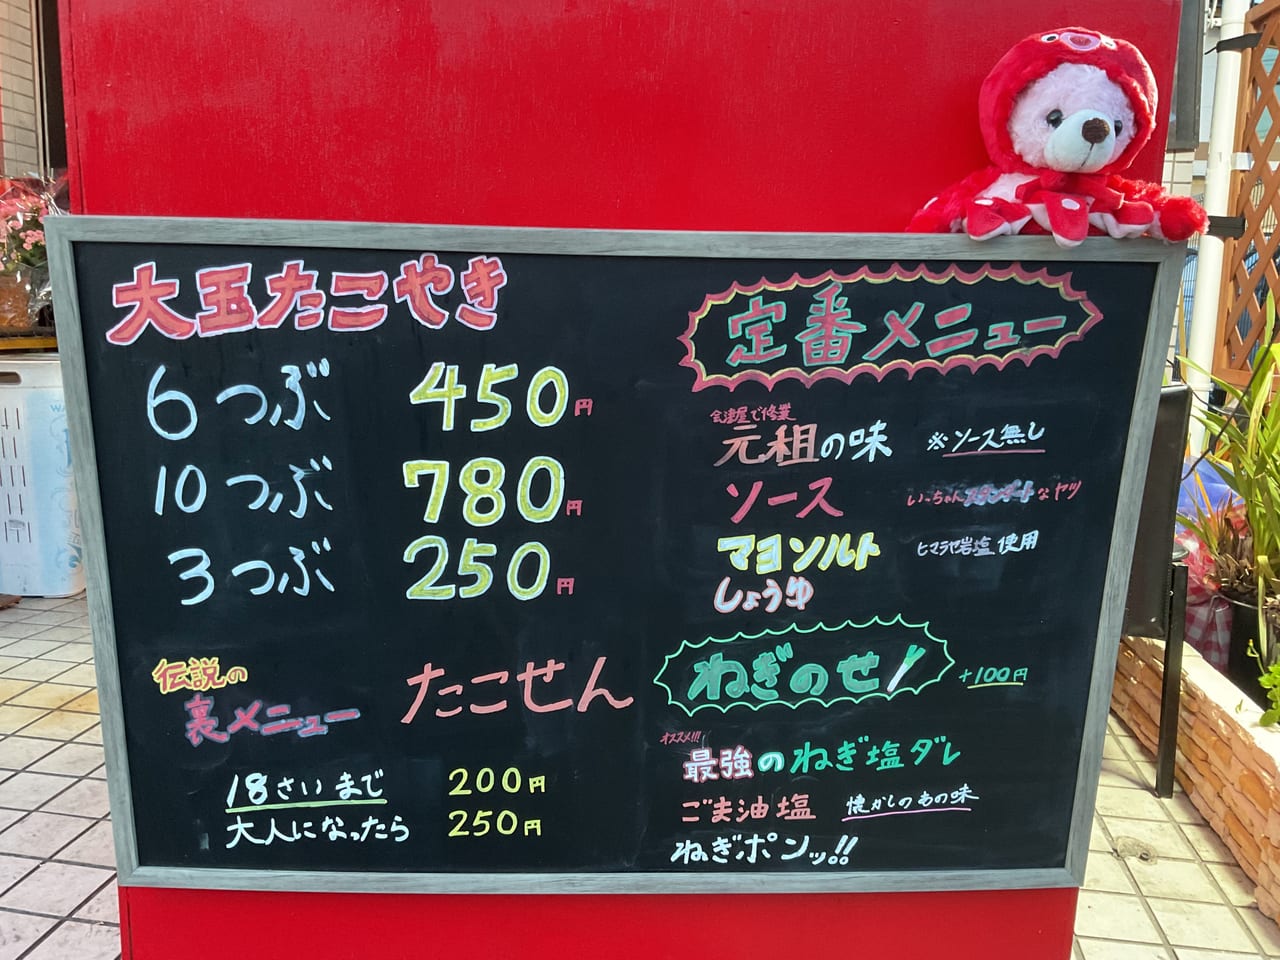 大玉たこやき
6つぶ 450円
10つぶ 780円
3つぶ 250円
伝説の
裏メニュー
たこせん
18さいまで 200円
大人になったら 250円
定番メニュー
会津屋で修業
元祖の味 ※ソース無し
ソース いっちゃんスタンダートなヤツ
マヨソルト ヒマラヤ岩塩使用
しょうゆ
ねぎのせ! +100円
オススメ!!!
最強のねぎ塩ダレ
ごま油塩 懐かしのあの味
ねぎポンッ!!